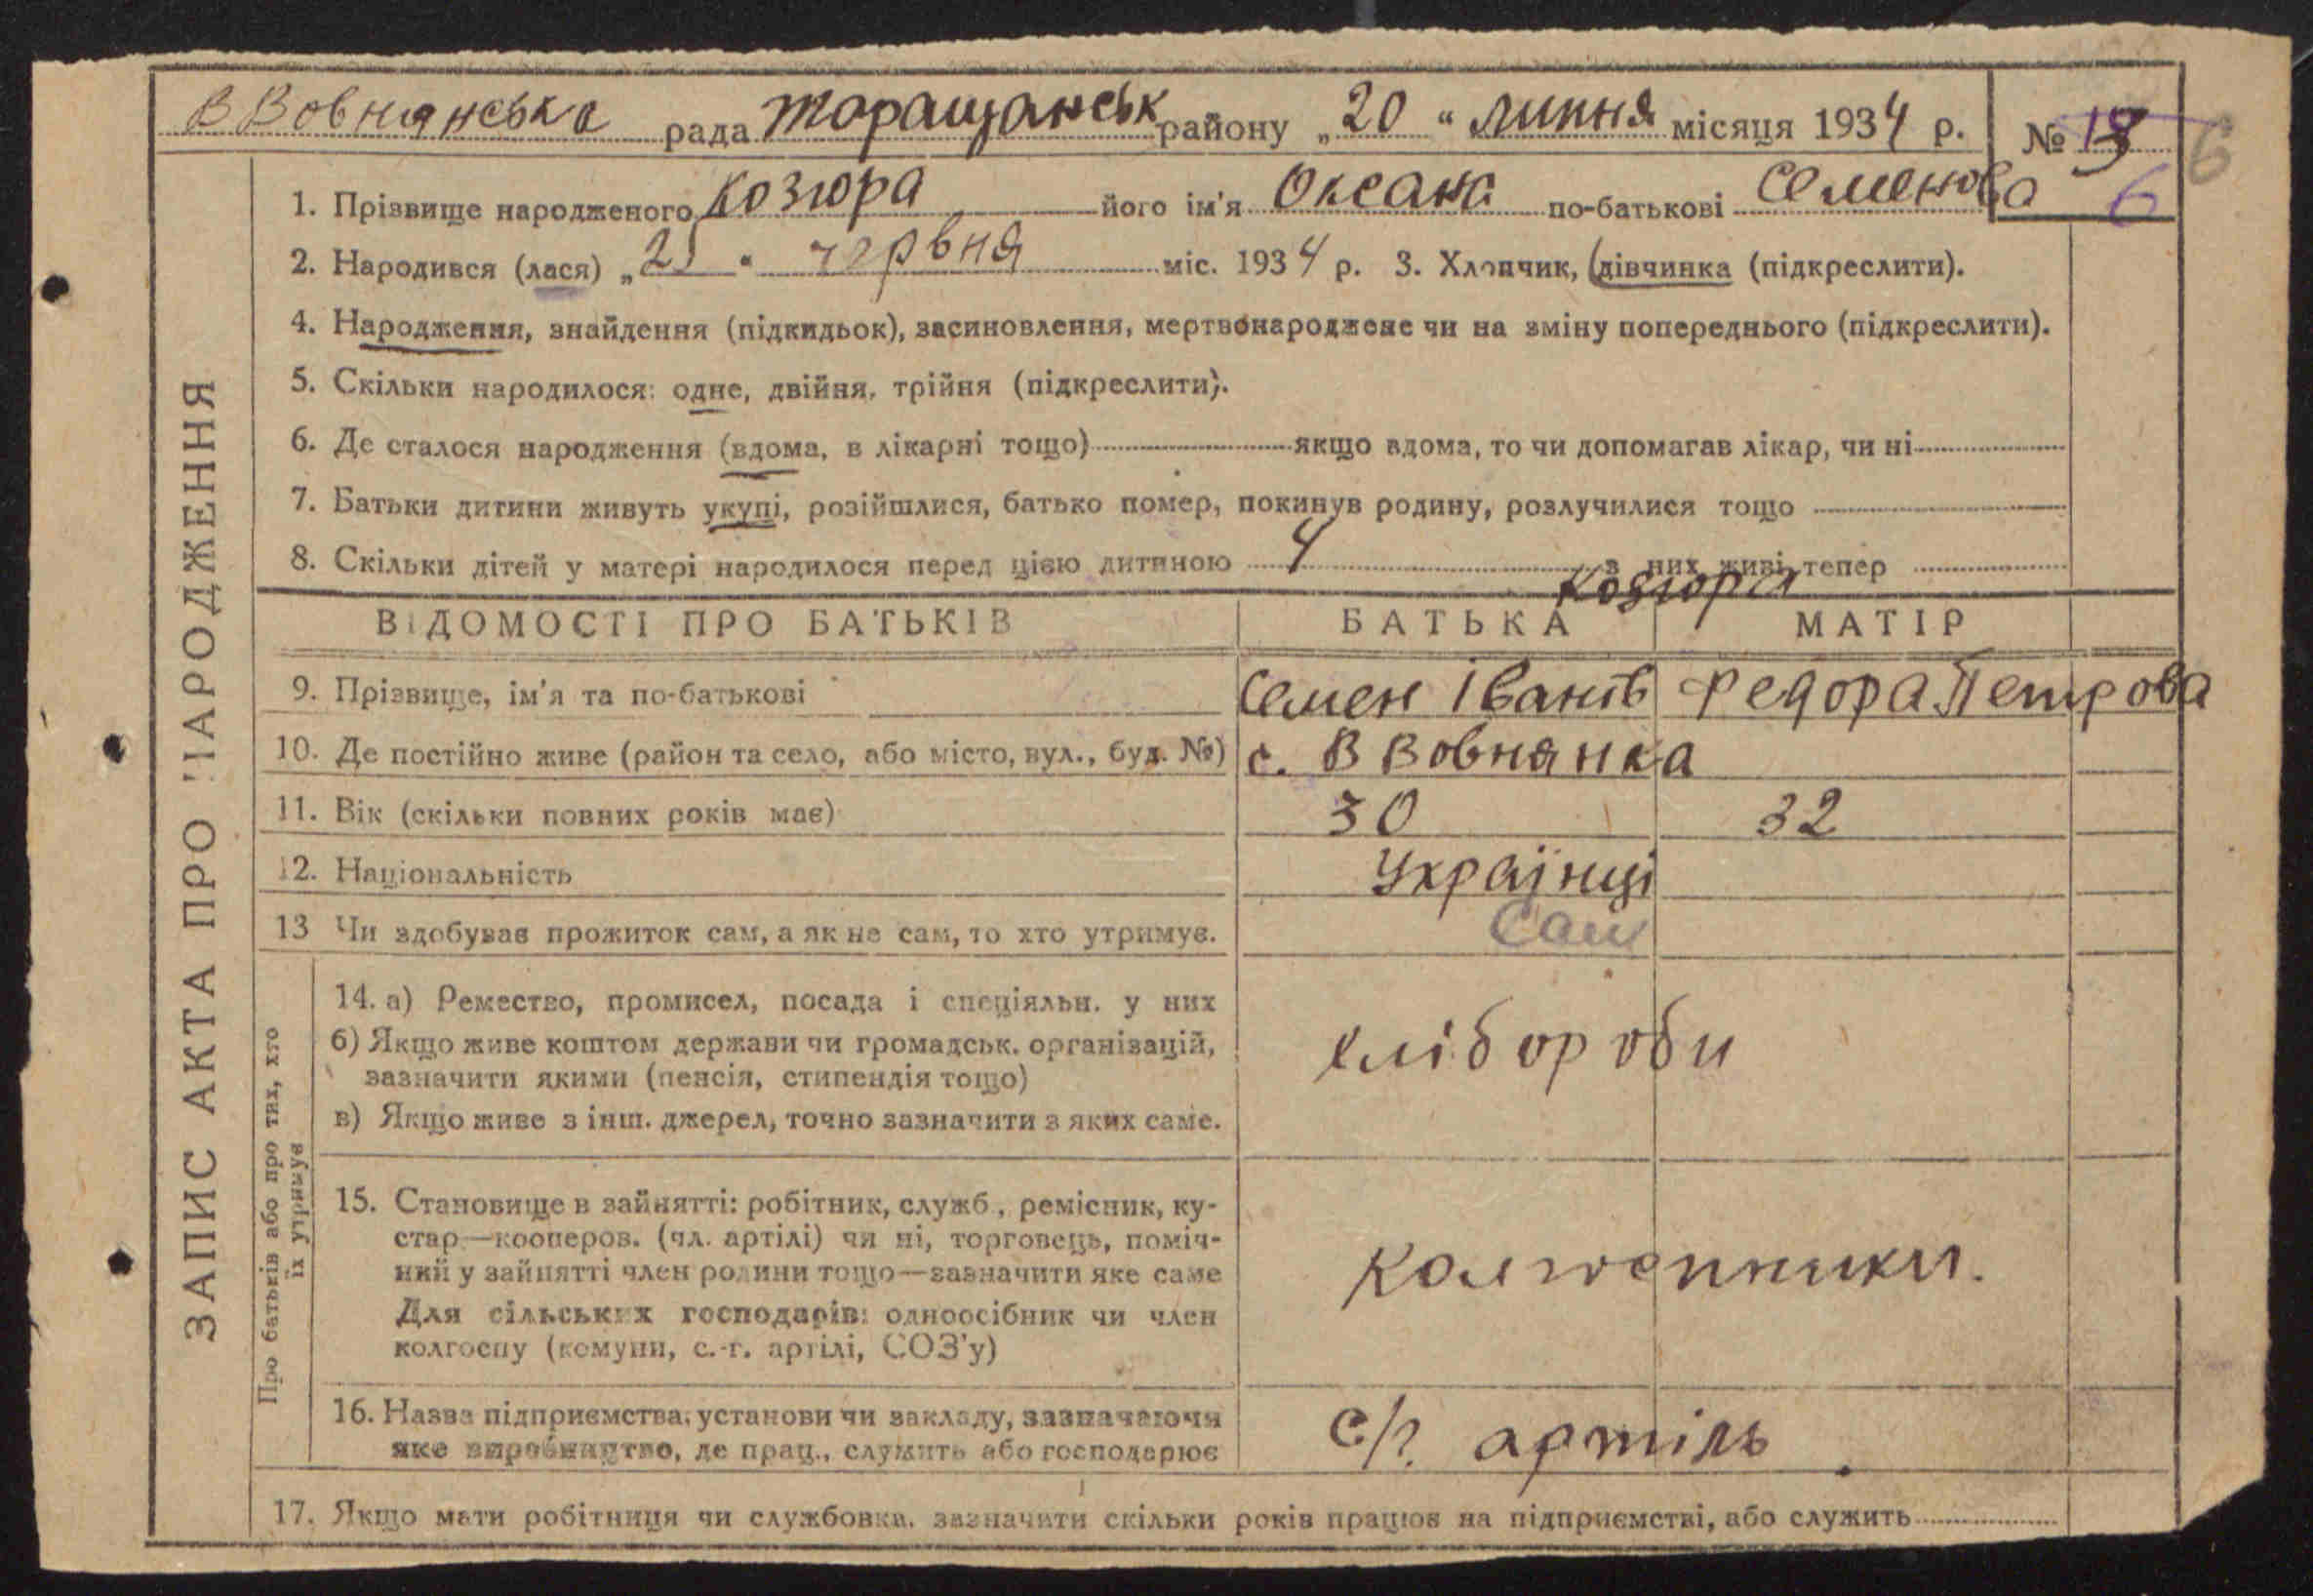 В Вовнянська рада Таращанськ району „20“ липня місяця 1934 р. №
6
1. Прізвище народженого Козюра його ім'я Оксана по-батькові Семенова
6
2. Народився (лася) „25“ червня міс. 1934 р. 3. Хлопчик, (дівчинка (підкреслити).
4. Народження, знайдення (підкидьок), засиновлення, мертвонароджене чи на зміну попереднього (підкреслити).
5. Скільки народилося: одне, двійня, трійня (підкреслити).
6. Де сталося народження (вдома, в лікарні тощо) якщо вдома, то чи допомагав лікар, чи ні
7. Батьки дитини живуть укупі, розійшлися, батько помер, покинув родину, розлучилися тощо
8. Скільки дітей у матері народилося перед цією дитиною 4 з них живі тепер
Козюра
ВІДОМОСТІ ПРО БАТЬКІВ БАТЬКА МАТІР
9. Прізвище, ім'я та по-батькові Семен Іванів Федора Петрова
10. Де постійно живе (район та село, або місто, вул., буд. №) с. В Вовнянка
11. Вік (скільки повних років має) 30 32
12. Національність Українці
13 Чи здобував прожиток сам, а як не сам, то хто утримує. Сам
14. а) Ремество, промисел, посада і спеціяльн. у них
б) Якщо живе коштом держави чи громадськ. організацій, хлібороби
зазначити якими (пенсія, стипендія тощо)
в) Якщо живе з інш. джерел, точно зазначити з яких саме.
15. Становище в зайнятті: робітник, служб., ремісник, ку-
стар—кооперов. (чл. артілі) чи ні, торговець, поміч-
ний у зайнятті член родини тощо—зазначити яке саме
Для сільських господарів: одноосібник чи член
колгоспу (комуни, с.-г. артілі, СОЗ'у)
16. Назва підприємства, установи чи закладу, зазначаючи с/г. артіль
яке виробництво, де прац., служить або господарює
17. Якщо мати робітниця чи службовка, зазначити скільки років працює на підприємстві, або служить
ЗАПИС АКТА ПРО НАРОДЖЕННЯ
Про батьків або про тих, хто
їх утримує